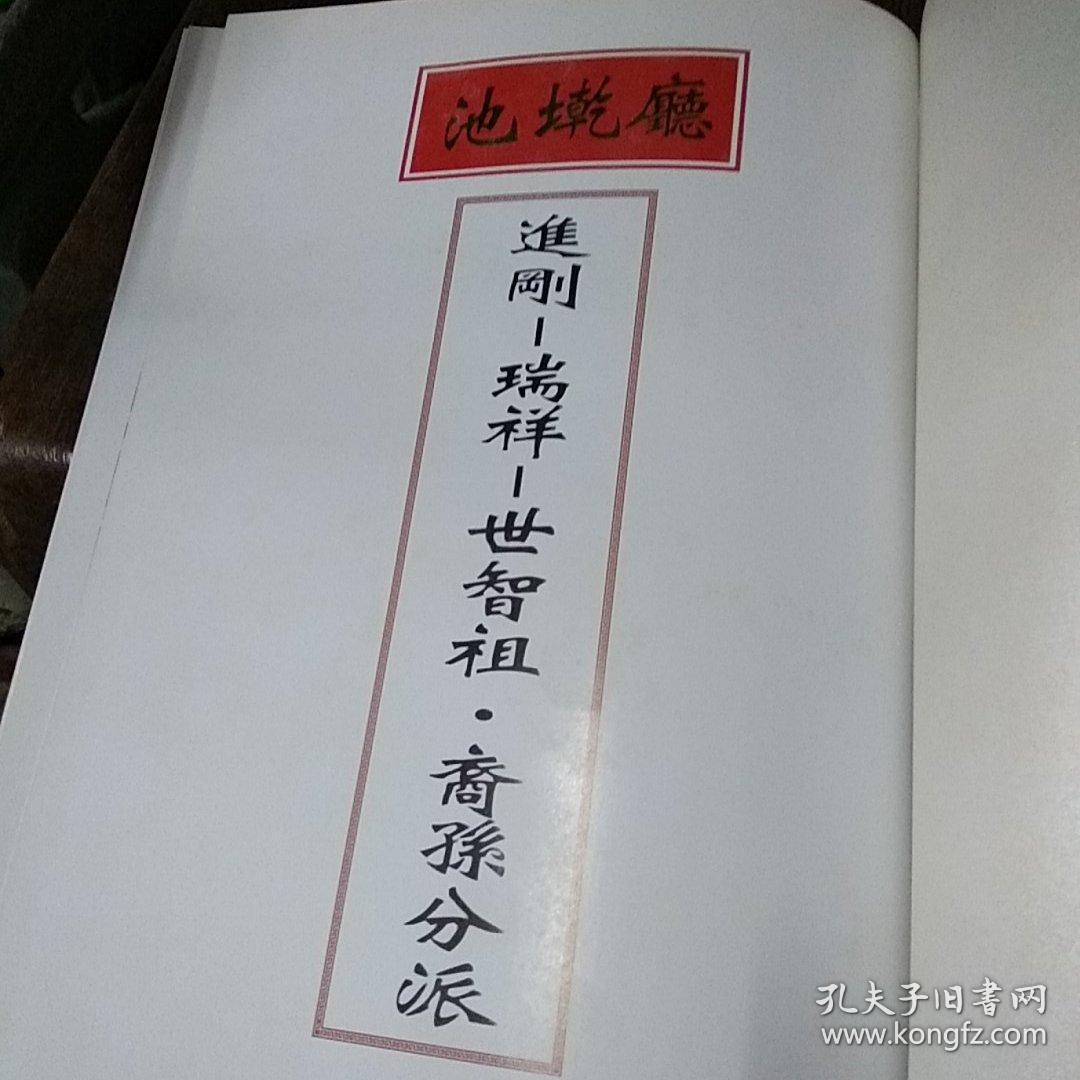 池墘廳
進剛-瑞祥-世智祖·裔孫分派
孔夫子旧書网
www.kongfz.com